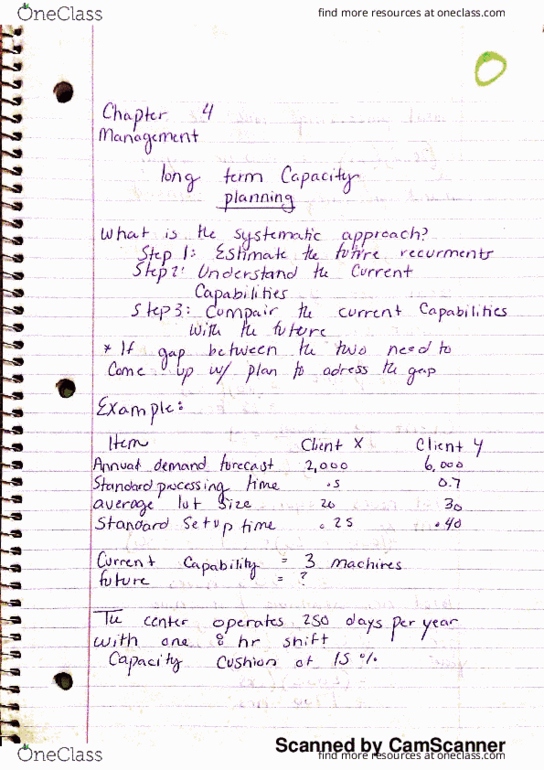 OneClass
find more resources at oneclass.com
Chapter 4
Management
long term Capacity
planning
What is the systematic approach?
Step 1: Estimate the future recurments
Step 2: Understand the Current
Capabilities
Step 3: Compair the current Capabilities
with the future
* If gap between the two need to
Come up w/ plan to adress the gap
Example:
Item Client X Client Y
Annual demand forecast 2,000 6,000
Standard processing time .5 0.7
average lot size 20 30
Standard Setup time .25 .40
Current Capability = 3 machines
future = ?
The center operates 250 days per year
with one 8 hr shift
Capacity Cushion of 15%
Scanned by CamScanner
OneClass
find more resources at oneclass.com